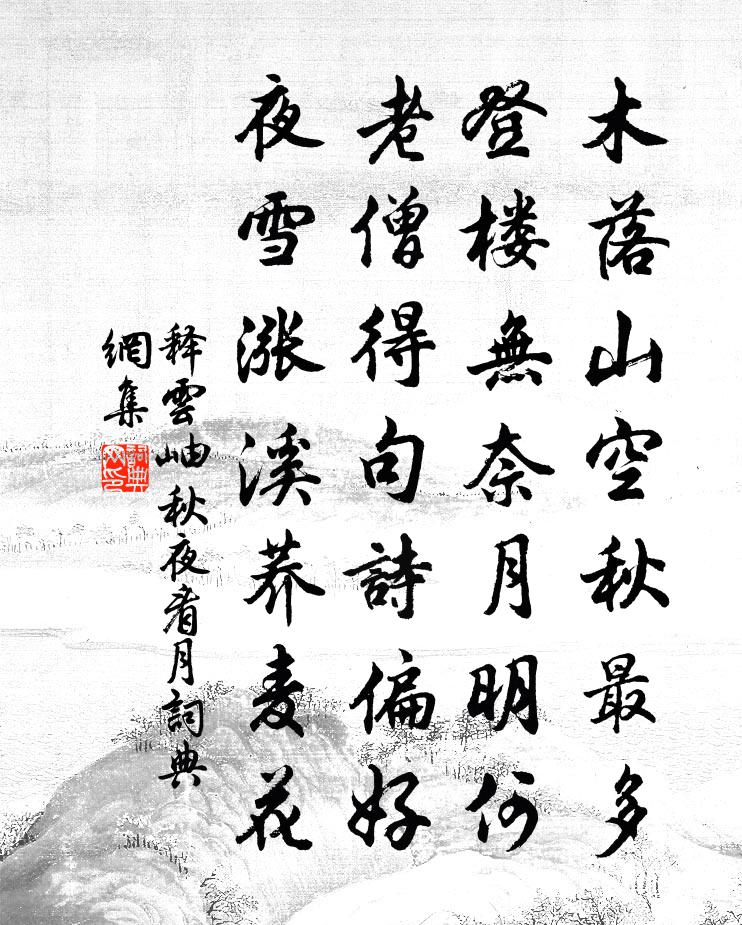 木落山空秋最多
登楼無奈月明何
老僧得句詩偏好
夜雪漲溪荞麦花
释雲岫秋夜看月詞典
網集
詞典网印